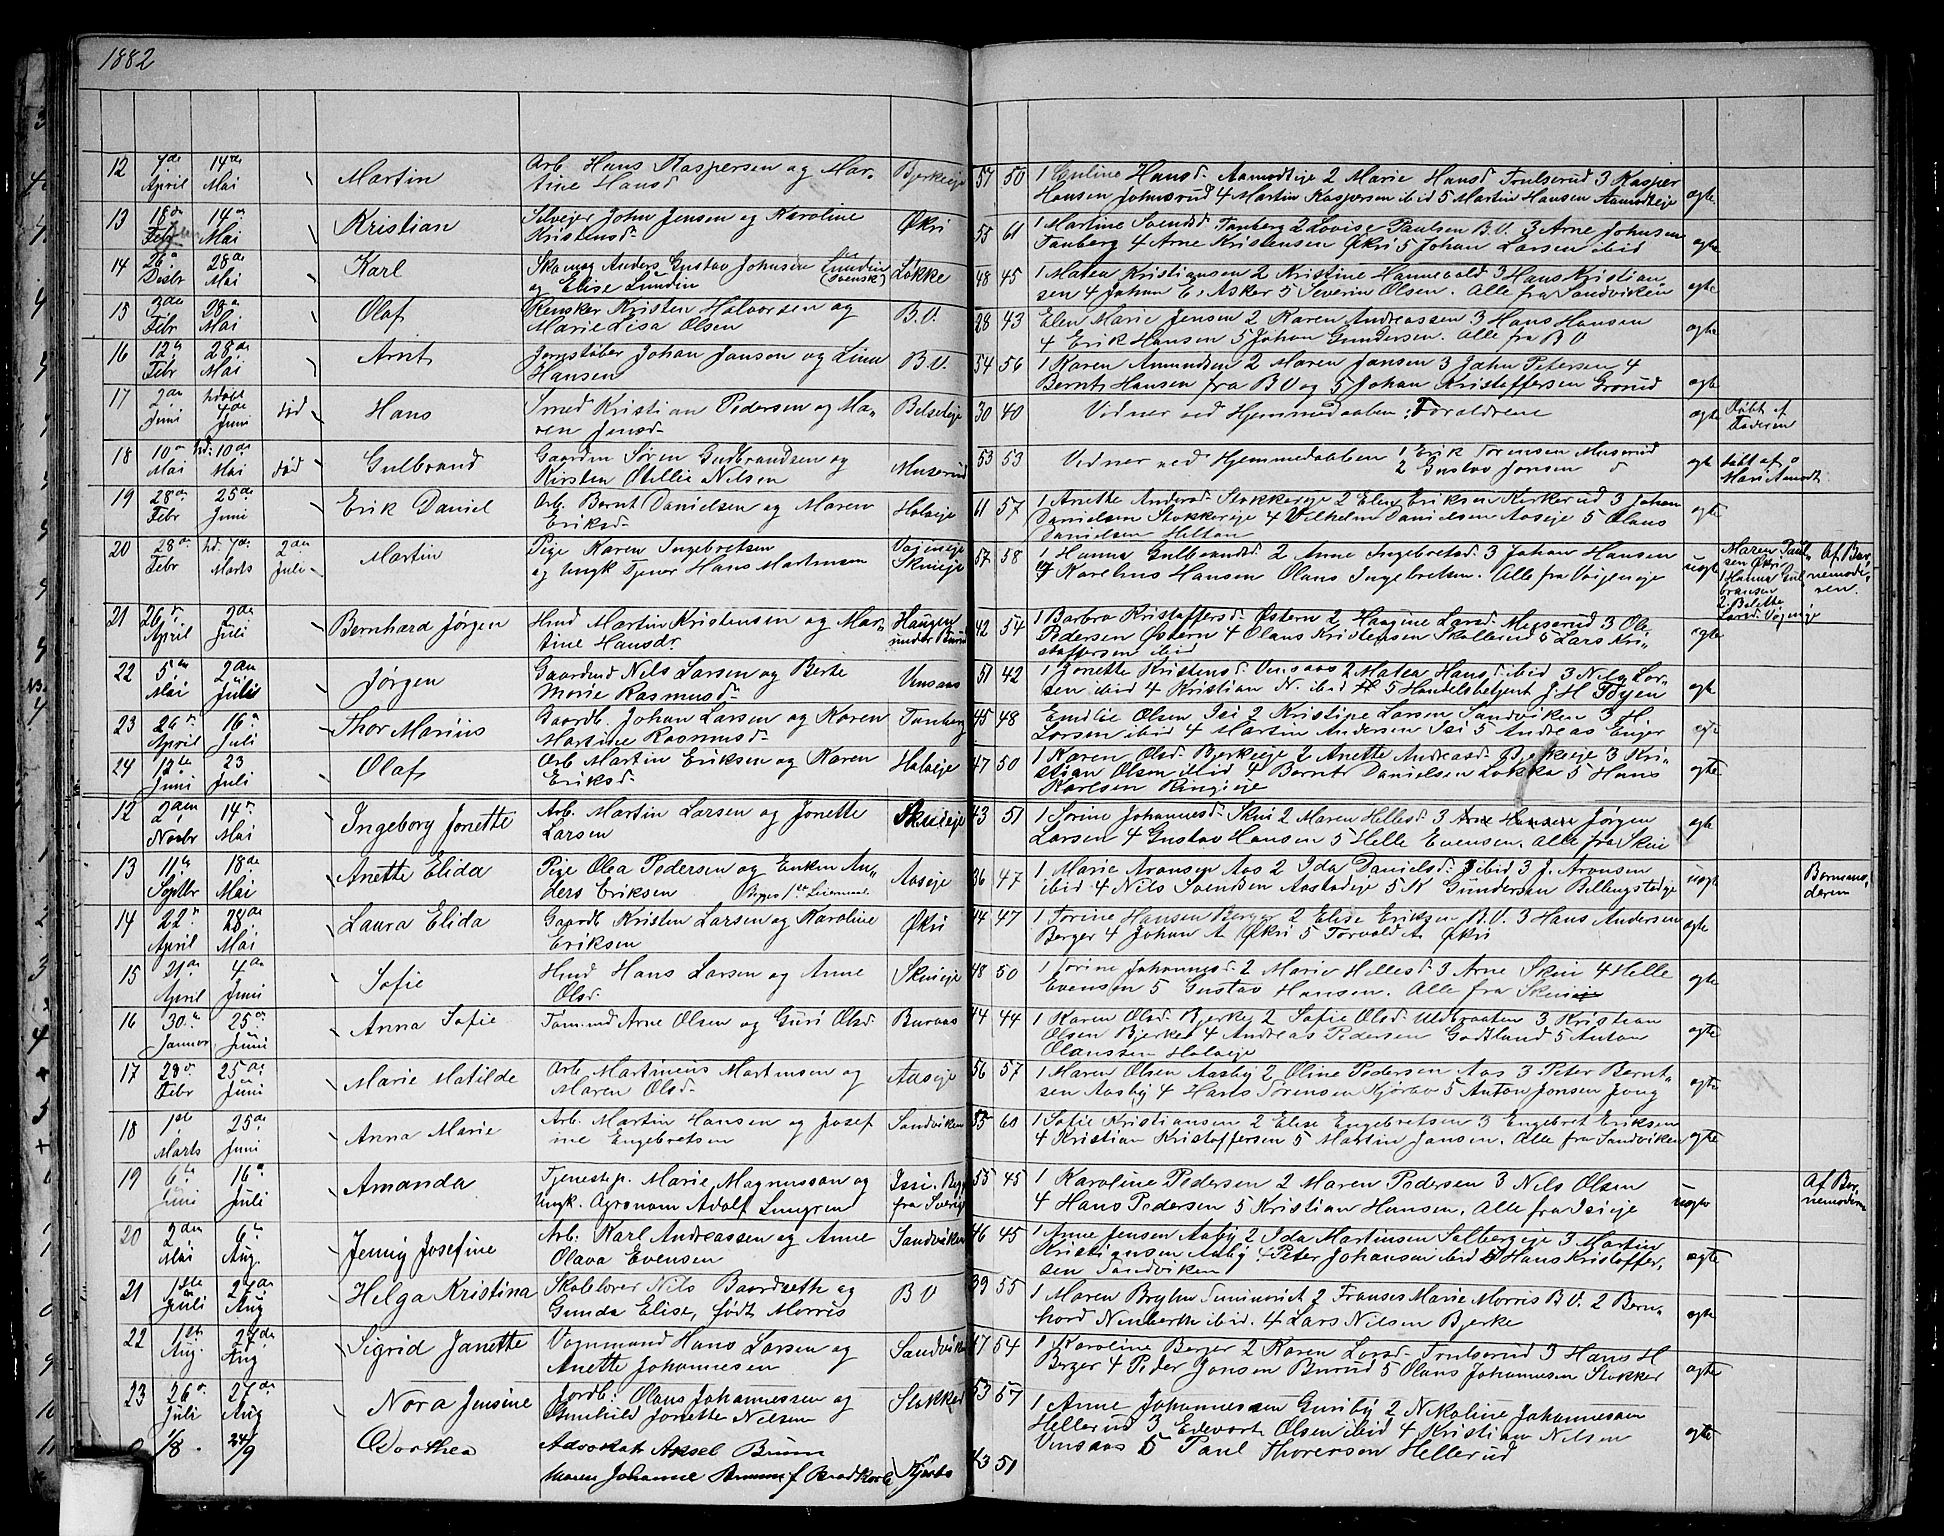 1882
12 7de April 14de Mai Martin Arb. Hans Kaspersen og Mar- Bjerkeeje 57 50 1 Hansd. Aamodteje 2 Marie Hansd Trulserud 3 Kasper
tine Hansd Hansen Johnsrud 4 Martin Kaspersen ibid 5 Martin Hansen Aamodteje ægte
13 18de Febr 14de Mai Kristian Selvejer John Jensen og Karoline Økri 55 61 1 Martine Svendsd Tanberg 2 Lovise Paulsen B.V. 3 Arne Johnsen
Kristensd. Tanberg 4 Arne Kristensen Økri 5 Johan Larsen ibid ægte
14 26de Desbr 28de Mai Karl Skomag Anders Gustav Johnsen Lunden (svensk) Løkke 48 45 1 Maren Kristiansen 2 Kristine Hannevold 3 Hans Kristian
og Elise Lunden sen 4 Johan E. Asker 5 Severin Olsen. Alle fra Sandviken ægte
15 2den Febr 28de Mai Olaf Kristen Halvorsen og B.V. 28 43 Elen Marie Jensen 2 Karen Andreassen 3 Hans Hansen
Marie Lisa Olsen 4 Erik Hansen 5 Johan Gundersen. Alle fra B V ægte
16 12te Febr 28de Mai Arnt Jernstøber Johan Jansen og Lina B.V. 54 56 1 Karen Amundsen 2 Maren Jansen 3 John Petersen 4
Hansen Bernt Hansen fra B V og 5 Johan Kristoffersen Grorud ægte
17 2den Juni hdøbt 4de Juni død Hans Smed Kristian Pedersen og Ma- Belseteje 30 40 Vidner ved Hjemmedaaben: Forældrene ægte døbt af
ren Jensd. Faderen
18 10de Mai hd: 10de Mai død Gulbrand Gaardm Søren Gudbrandsen og Muserud 53 53 Vidner ved Hjemmedaaben 1 Erik Sørensen Muserud ægte døbt af
Kirsten Otellie Nilsen 2 Gustav Jonsen Mari Aamodt.
19 28de Febr 25de Juni Erik Daniel Arb. Bernt Danielsen og Maren Halseje 61 57 1 Anette Andersd. Stokkereje 2 Elen Eriksen Kirkerud 3 Johan
Eriksd. Danielsen Stokkereje 4 Vilhelm Danielsen Aaseje 5 Olaus ægte
Danielsen Helton
20 28de Febr hd. 7de Marts 2den Juli Martin Pige Karen Ingebretsen Vøjeneje 57 58 1 Hanna Gulbrandsd. 2 Anne Ingebretsd. 3 Johan Hansen uægte Maren Paul- Af Bar-
og Ungk Tjener Hans Martinsen Skuieje 4 Karelius Hansen Olaus Ingebretsen. Alle fra Vøjeneje sen Økri nemode-
1 Hanna Gul ren.
bransen
2 Bolette
Larsd. Vøjeneje
21 26de April 2den Juli Bernhard Jørgen Hmd Martin Kristensen og Mar- Haugen 42 54 1 Barbra Kristoffersd. Østern 2 Haagine Larsd. 3 Ole
tine Hansdr. under Burud Pedersen Østern 4 Olaus Kristensen Skollerud 5 Lars Kri- ægte
stoffersen ibid
22 5te Mai 2den Juli Jørgen Gaardmd Nils Larsen og Berte Vensaas 51 42 1 Jonette Kristensd. Vensaas 2 Matea Hansd. ibid 3 Nils Lar-
Marie Rasmusd. sen ibid 4 Kristian N. ibid 5 Handelsbetjent J.H Føyen ægte
23 26de April 16de Juli Thor Marius Gaardb. Johan Larsen og Karen Tanberg 45 48 Emilie Olsen Isi 2 Kristine Larsen Sandviken 3 H.
Martine Rasmusd. Larsen ibid 4 Martin Andersen Isi 5 Andreas Enger ægte
24 12te Juni 23 Juli Olaf Arb Martin Eriksen og Karen Halseje 47 50 1 Karen Olsd. Bjerkeeje 2 Anette Andreasd. Bjerkeeje 3 Kri-
Eriksd. stian Olsen ibid 4 Bernt Danielsen Løkka 5 Hans ægte.
Karlsen Ringieje
12 2den Novbr 14de Mai Ingeborg Jonette Arb. Martin Larsen og Jonette Skuieje 43 51 1 Torine Johannesd. Skui 2 Maren Hellesd. 3 Arne Hansen Jørgen
Larsen Larsen 4 Gustav Hansen 5 Helle Evensen. Alle fra Skui ægte
13 11te Septbr 18de Mai Anette Elida Pige Olea Pedersen og Enkem An- Aaseje 36 47 1 Marie Aronsen Aas 2 Ida Danielsd. ibid 3 J. Aronsen uægte Barnemo-
ders Eriksen Begges 1ste Leiermaal. ibid 4 Nils Svendsen Aastadeje 5 K Gundersen Billingstadeje deren
14 22de April 28de Mai Laura Elida Gaardb Kristen Larsen og Karoline Økri 44 47 1 Torine Hansen Berger 2 Elise Eriksen B.V. 3 Hans Andersen
Eriksen Berger 4 Johan A. Økri 5 Torvald A. Økri ægte
15 21de April 4de Juni Sofie Hmd Hans Larsen og Anne Skuieje 48 50 1 Torine Johannesd. 2 Marie Hellesd. 3 Arne Skui 4 Helle
Olsd. Evensen 5 Gustav Hansen. Alle fra Skui ægte
16 30te Januar 25de Juni Anna Sofie Tømmd Arne Olsen og Guri Olsd Buraas 44 44 1 Karen Olsd. Bjerke 2 Sofie Olsd. Uldbraaten 3 Kristian
Olsen Bjerke 4 Andreas Pedersen Godtlund 5 Anton ægte
Olaussen Halseje
17 28de Febr 25de Juni Marie Matilde Arb. Martinius Martinsen og Aaseje 56 57 1 Maren Olsen Aasby 2 Oline Pedersen Aas 3 Peter Bernt-
Maren Olsd. sen Aasby 4 Hans Sørensen Kjørbo 5 Anton Jonsen Jong ægte
18 1ste Marts 25de Juni Anna Marie Arb. Martin Hansen og Josef Sandviken 55 60 1 Sofie Kristiansen 2 Elise Engebretsen 3 Engebret Eriksen
ine Engebretsen 4 Kristian Kristoffersen 5 Martin Jansen. Alle fra Sandviken ægte
19 6te Juni 16de Juli Amanda Tjenestep. Marie Magnussen og Issi. Begg 55 45 1 Karoline Pedersen 2 Maren Pedersen 3 Nils Olsen uægte Af Bar-
Ungk. Agronom Adolf Lingren fra Sverige 4 Hans Pedersen 5 Kristian Hansen. Alle fra Isieje nemoderen
20 2den Mai 6te Aug. Jenny Josefine Arb. Karl Andreassen og Anne Sandviken 46 45 1 Anne Jensen Aasby 2 Ida Martinsen Solbergeje 3 Martin
Olava Evensen Kristiansen Aasby 4 Peter Johansen ibid 5 Hans Kristoffer- ægte
sen Sandviken
21 1ste Juli 27de Aug Helga Kristina Skolelærer Nils Baardseth og B V 39 55 1 Maren Bryhn Seminariet 2 Franses Marie Morris B V. 2 Bern-
Gunda Elise, født Morris hard Neuberth ibid. 4 Lars Nilsen Bjerke ægte
22 1ste Aug. 27de Aug Sigrid Janette Vognmand Hans Larsen og Sandviken 47 54 1 Karoline Berger 2 Karen Larsd. Trulserud 3 Hans H
Anette Johannesen Berger 4 Peder Jonsen Burud 5 Olaus Johannesen Stokker ægte
23 26de Juli 27de Aug Nora Jensine Jordb. Olaus Johannessen og Stokker 53 57 1 Anne Johannessen Gunby 2 Nikoline Johannessen
Gunhild Jonette Nilsen Hellerud 3 Edevart Olsen ibid 4 Kristian Nilsen
1/8. 24/9 Dorthea Advokat Aksel Bruun Kjørbo 43 51 Vensaas 5 Paul Thoresen Hellerud ægte
Maren Johanne Bruun f.